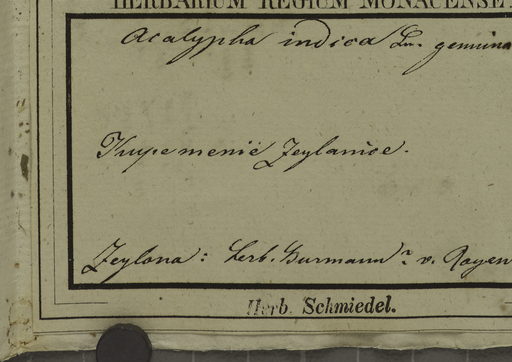 HERBARIUM REGIUM MONACENSE.
Acalypha indica Lin. genuina
Kupemenië Zeylanice.
Zeylona: herb. Burmann? v. Royen
Herb. Schmiedel.